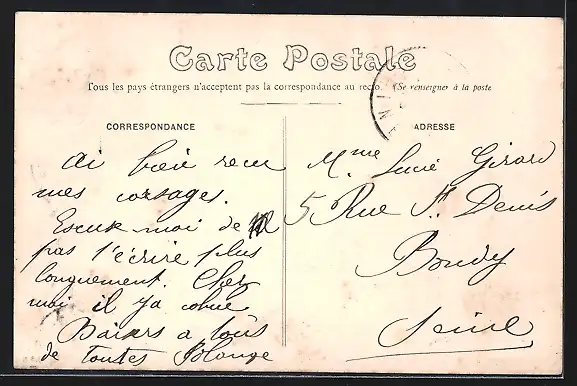 Carte Postale
Tous les pays étrangers n'acceptent pas la correspondance au recto. (Se renseigner à la poste
CORRESPONDANCE
ADRESSE
Ai bien recu
mes corsages.
Excuse moi de
pas t'écrire plus
longuement. Chez
moi il ya cohue
Baisers a tous
de toutes Solange
Mme Lucie Girard
5 Rue St. Denis
Bondy
Seine